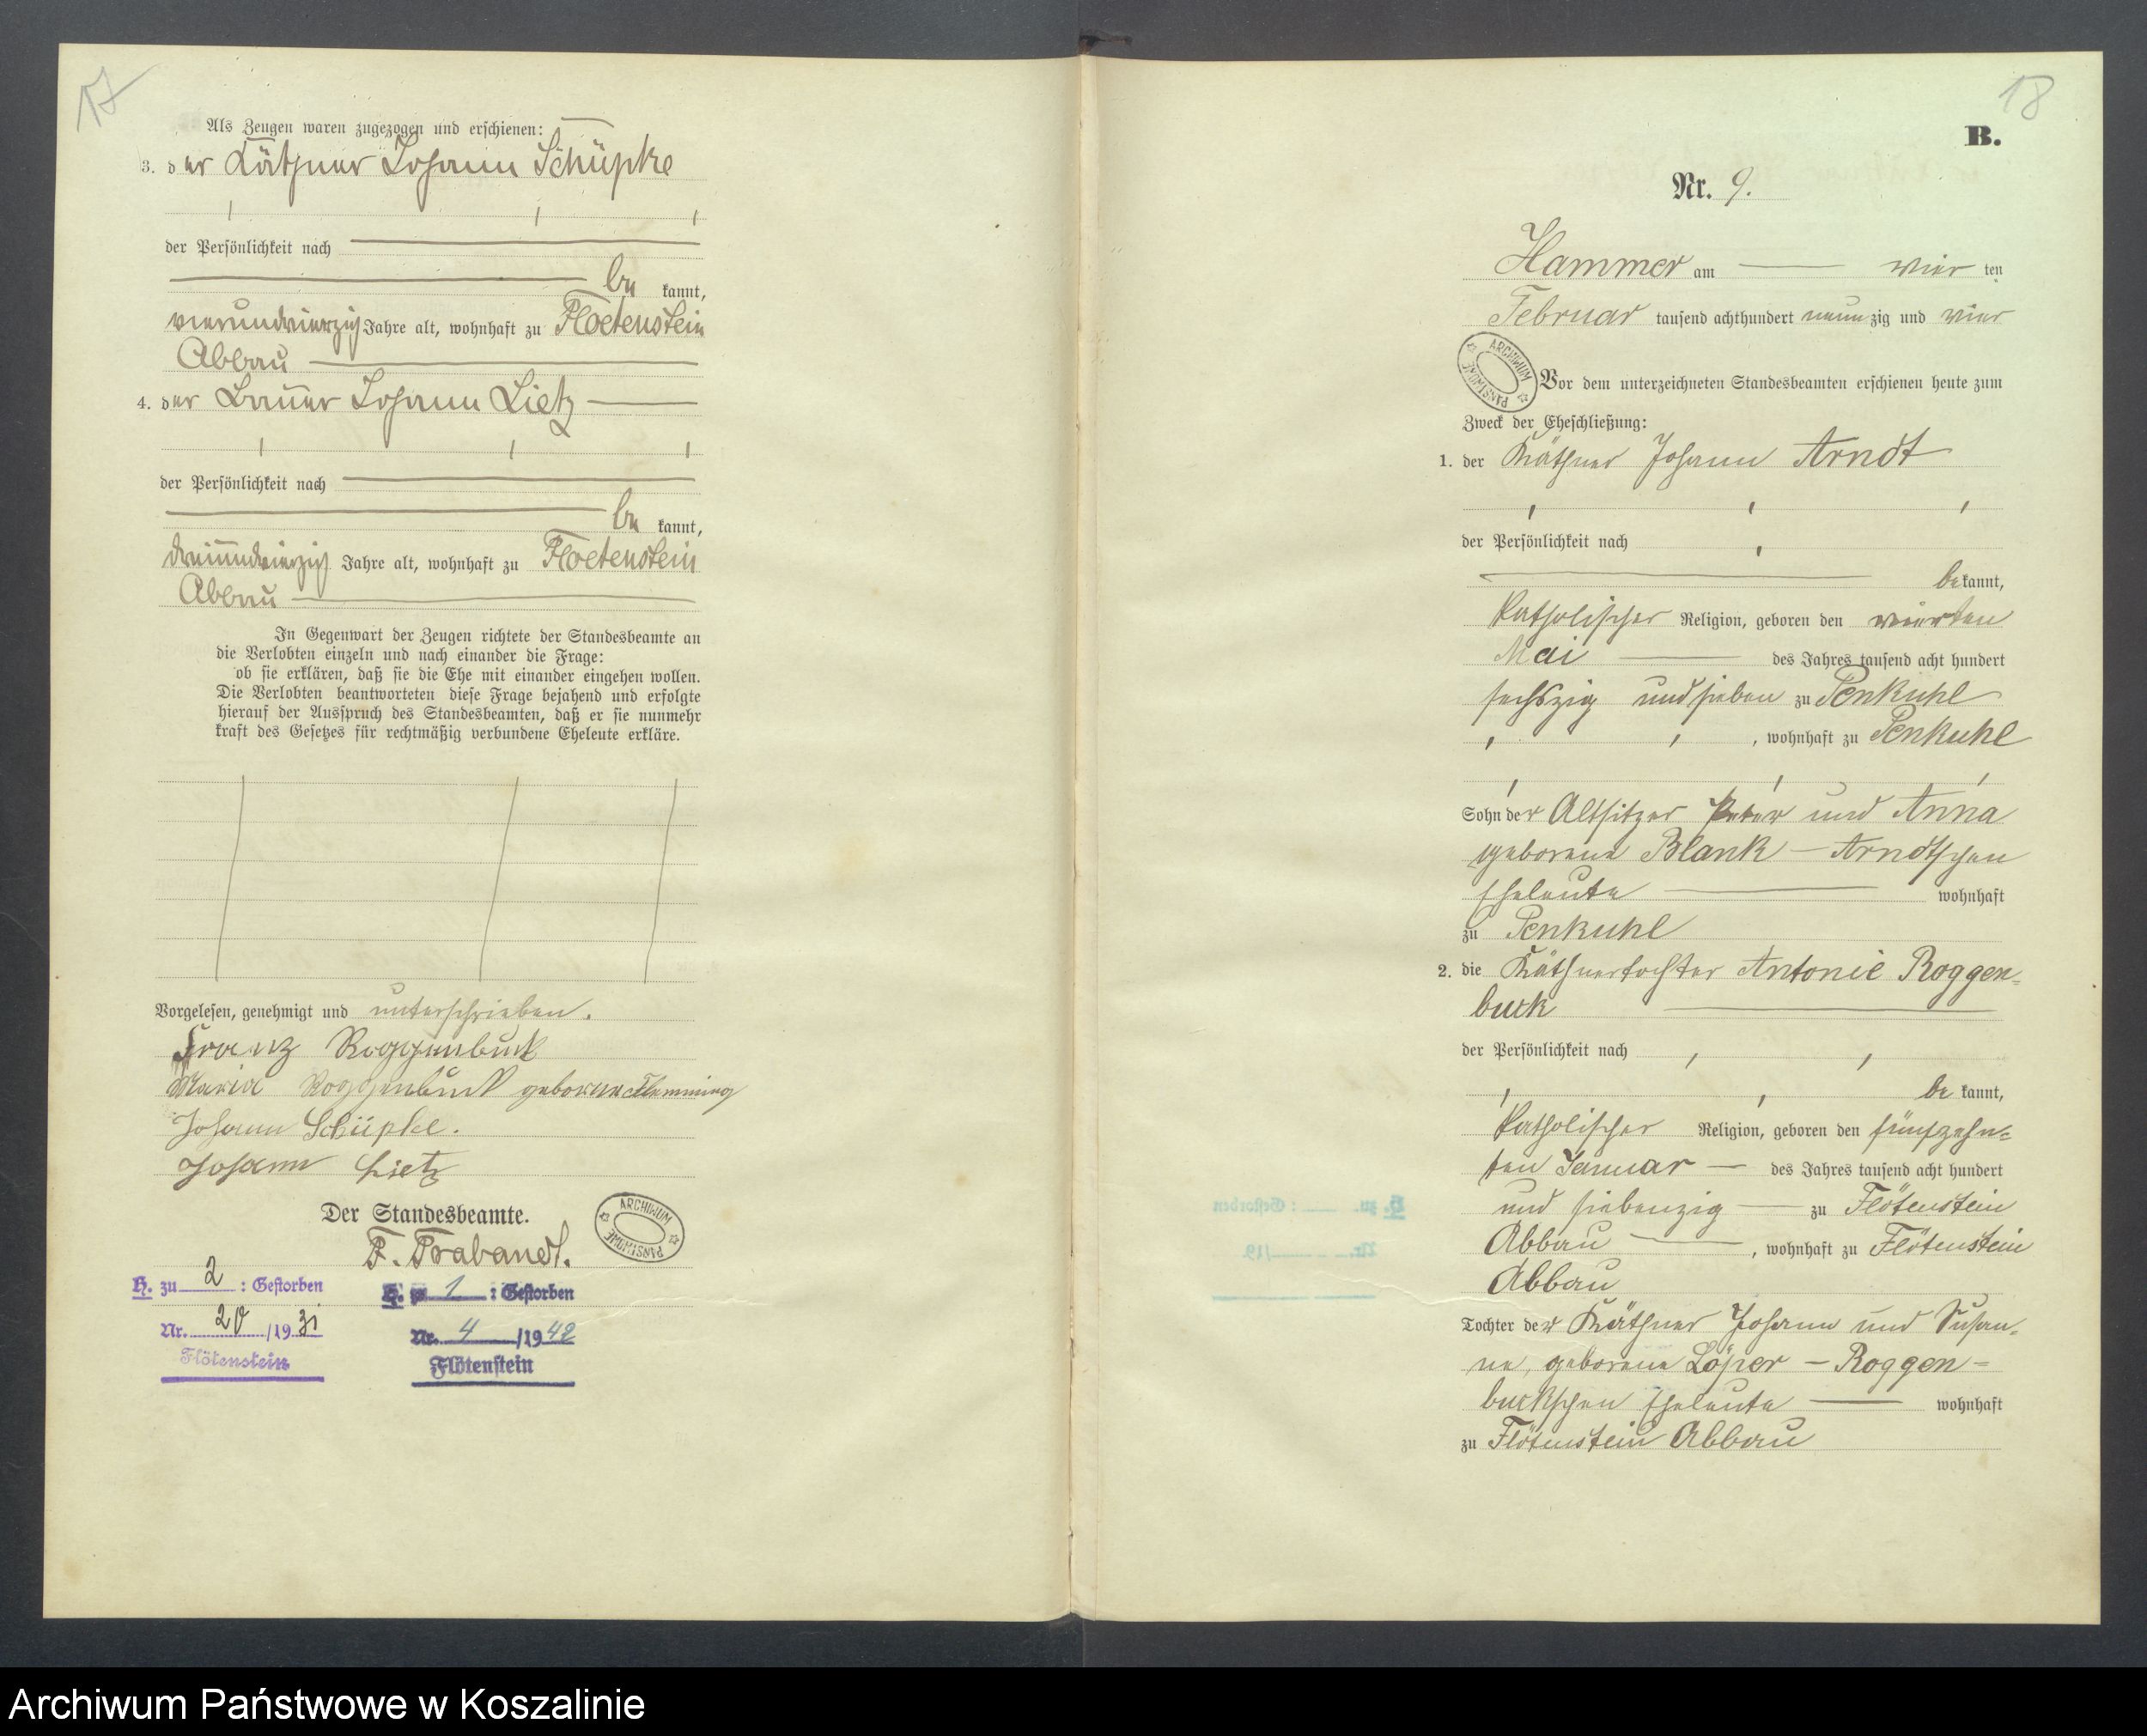 17
Als Zeugen waren zugezogen und erschienen:
3. der Käthner Johann Schüpke
der Persönlichkeit nach
be kannt,
vierundvierzig Jahre alt, wohnhaft zu Floetenstein
Abbau
4. der Bauer Johann Lietz
der Persönlichkeit nach
be kannt,
dreiundvierzig Jahre alt, wohnhaft zu Floetenstein
Abbau
In Gegenwart der Zeugen richtete der Standesbeamte an
die Verlobten einzeln und nach einander die Frage:
ob sie erklären, daß sie die Ehe mit einander eingehen wollen.
Die Verlobten beantworteten diese Frage bejahend und erfolgte
hierauf der Ausspruch des Standesbeamten, daß er sie nunmehr
kraft des Gesetzes für rechtmäßig verbundene Eheleute erkläre.
Vorgelesen, genehmigt und unterschrieben.
Franz Roggenbuck
Maria Roggenbuck geborene Flemming
Johann Schüpke.
Johann Lietz
Der Standesbeamte.
F. Trabandt.
ARCHIWUM PAŃSTWOWE
H. zu 2 : Gestorben
Nr. 20/1931
Flötenstein
H. zu 1 : Gestorben
Nr. 4/1942
Flötenstein
18
B.
Nr. 9.
Hammer am vier ten
Februar tausend achthundert neunzig und vier
ARCHIWUM PAŃSTWOWE
Vor dem unterzeichneten Standesbeamten erschienen heute zum
Zweck der Eheschließung:
1. der Käthner Johann Arndt
der Persönlichkeit nach
be kannt,
katholischer Religion, geboren den vierten
Mai des Jahres tausend acht hundert
sechszig und sieben zu Penkuhl
, wohnhaft zu Penkuhl
Sohn der Altsitzer Peter und Anna
geborene Blank – Arndtschen
Eheleute wohnhaft
zu Penkuhl
2. die Käthnertochter Antonie Roggen-
buck
der Persönlichkeit nach
be kannt,
katholischer Religion, geboren den fünfzehn-
ten Januar des Jahres tausend acht hundert
und siebenzig zu Flötenstein
Abbau , wohnhaft zu Flötenstein
Abbau
Tochter der Käthner Johann und Susan-
ne, geborene Löper – Roggen-
buckschen Eheleute wohnhaft
zu Flötenstein Abbau
Archiwum Państwowe w Koszalinie